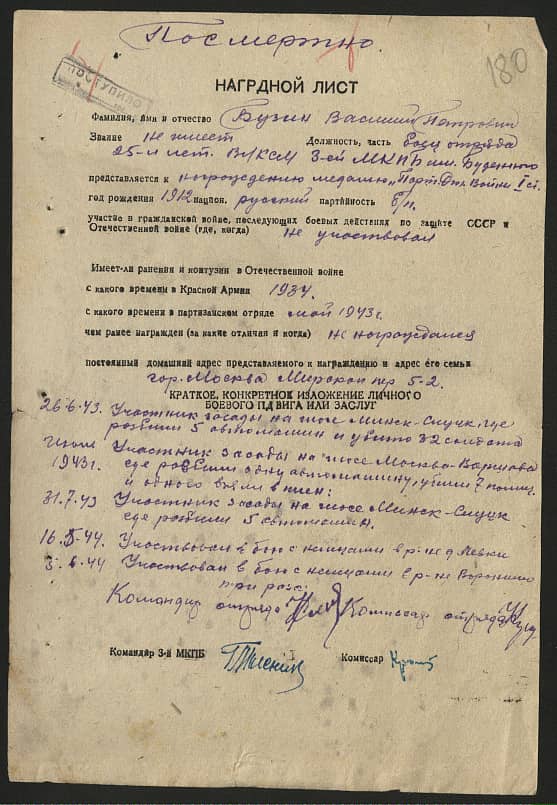 Посмертно.
180
ПОСТУПИЛО
НАГРДНОЙ ЛИСТ
Фамилия, имя и отчество Бузин Василий Петрович
Звание не имеет Должность, часть боец отряда
25-л лет. ВЛКСМ 3-ей МКПБ им. Буденного
представляется к награждению медалью „Парт. Отеч. Войны" I ст.
год рождения 1912 национ. русский партийность б/п.
участие в гражданской войне, последующих боевых действиях по защите СССР и
Отечественной войне (где, когда) Не участвовал
Имеет-ли ранения и контузии в Отечественной войне
с какого времени в Красной Армии 1934.
с какого времени в партизанском отряде май 1943г.
чем ранее награжден (за какие отличия и когда) не награждался
постоянный домашний адрес представляемого к награждению и адрес его семьи
гор. Москва пр 5-2.
КРАТКОЕ, КОНКРЕТНОЕ ИЗЛОЖЕНИЕ ЛИЧНОГО
БОЕВОГО ПДВИГА ИЛИ ЗАСЛУГ
26.6.43. Участник засады на шосе Минск-Слуцк, где
разбили 5 автомашин и убито 32 солдата
Июль Участник засады на шосе Москва-Варшава
1943г. где разбили одну автомашину, убили 7
и одного взяли в плен.
31.7.43 Участник засады на шосе Минск-Слуцк
где разбили 5 автомашин.
16.5.44. Участвовал в бою с немцами в р-не д. Левки
3.6.44 Участвовал в бою с немцами в р-не
Командир отряда Комиссар отряда
Командир 3-й МКПБ Комиссар